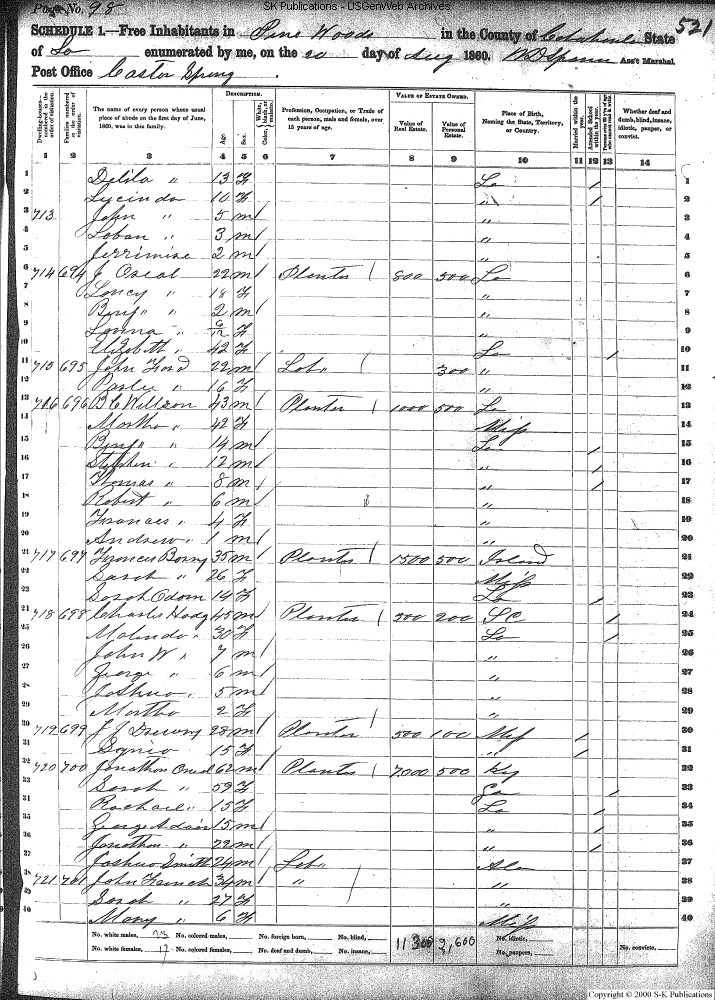 SK Publications - USGenWeb Archives
Page No. 98
521
SCHEDULE 1.—Free Inhabitants in Pine Woods in the County of Catahoula State
of La enumerated by me, on the 20 day of Aug 1860. Ass't Marshal.
Post Office Castor Spring
Dwelling-houses—numbered in the order of visitation.
Families numbered in the order of visitation.
The name of every person whose usual place of abode on the first day of June, 1860, was in this family.
DESCRIPTION.
Age.
Sex.
White, Color, black, or mulatto.
Profession, Occupation, or Trade of each person, male and female, over 15 years of age.
VALUE OF ESTATE OWNED.
Value of Real Estate.
Value of Personal Estate.
Place of Birth, Naming the State, Territory, or Country.
Married within the year.
Attended School within the year.
Persons over 20 y'rs of age who cannot read & write.
Whether deaf and dumb, blind, insane, idiotic, pauper, or convict.
1 2 3 4 5 6 7 8 9 10 11 12 13 14
1 Delila " 13 F La / 1
2 Lucinda 10 F " / 2
3 713 John " 5 m / " 3
4 Laban " 3 m / " 4
5 Jerrimine 2 m / " 5
6 714 694 J Oneal 22 m / Planter / 800 500 La 6
7 Loucy " 18 F " 7
8 Benj " " 2 m / " 8
9 Lovina " 6/12 F " 9
10 Elizabeth " 42 F La 10
11 715 695 John Ford 22 m / Lab " / 300 " / 11
12 " 16 F " 12
13 716 696 B C Willson 43 m / Planter / 1000 500 La 13
14 Martha " 42 F Miss 14
15 Benj " " 14 m / La / 15
16 Stephen " 12 m / " / 16
17 Thomas " 8 m / " / 17
18 Robert " 6 m / " 18
19 Frances " 4 F " 19
20 Andrew " 1 m / " 20
21 717 697 Francis 35 m / Planter / 1500 500 21
22 Sarah " 26 F Miss 22
23 Sarah Odom 14 F La / 23
24 718 698 Charles Hodg 45 m / Planter / 500 200 SC / 24
25 Malinda " 30 F La / 25
26 John W " 7 m / " 26
27 George " 6 m / " 27
28 Joshua " 5 m / " 28
29 Martha 2 F " 29
30 719 699 J J Drewry 28 m / Planter / 500 100 Miss / 30
31 15 F " / 31
32 720 700 Jonathan Oneal 62 m / Planter / 7000 500 Ky 32
33 Sarah " 59 F Ga / 33
34 Rachael " 15 F La / 34
35 George Adair 15 m / " / 35
36 Jonathan " 22 m / " / 36
37 Joshua Smith 24 m / Lab " / Ala 37
38 721 701 John 34 m / " / " 38
39 Sarah " 27 F " 39
40 Mary " 6 F Miss 40
No. white males, 23 No. colored males, No. foreign born, No. blind, 11300 2,600 No. idiotic,
No. white females, 17 No. colored females, No. deaf and dumb, No. insane, No. paupers, No. convicts,
Copyright © 2000 S-K Publications